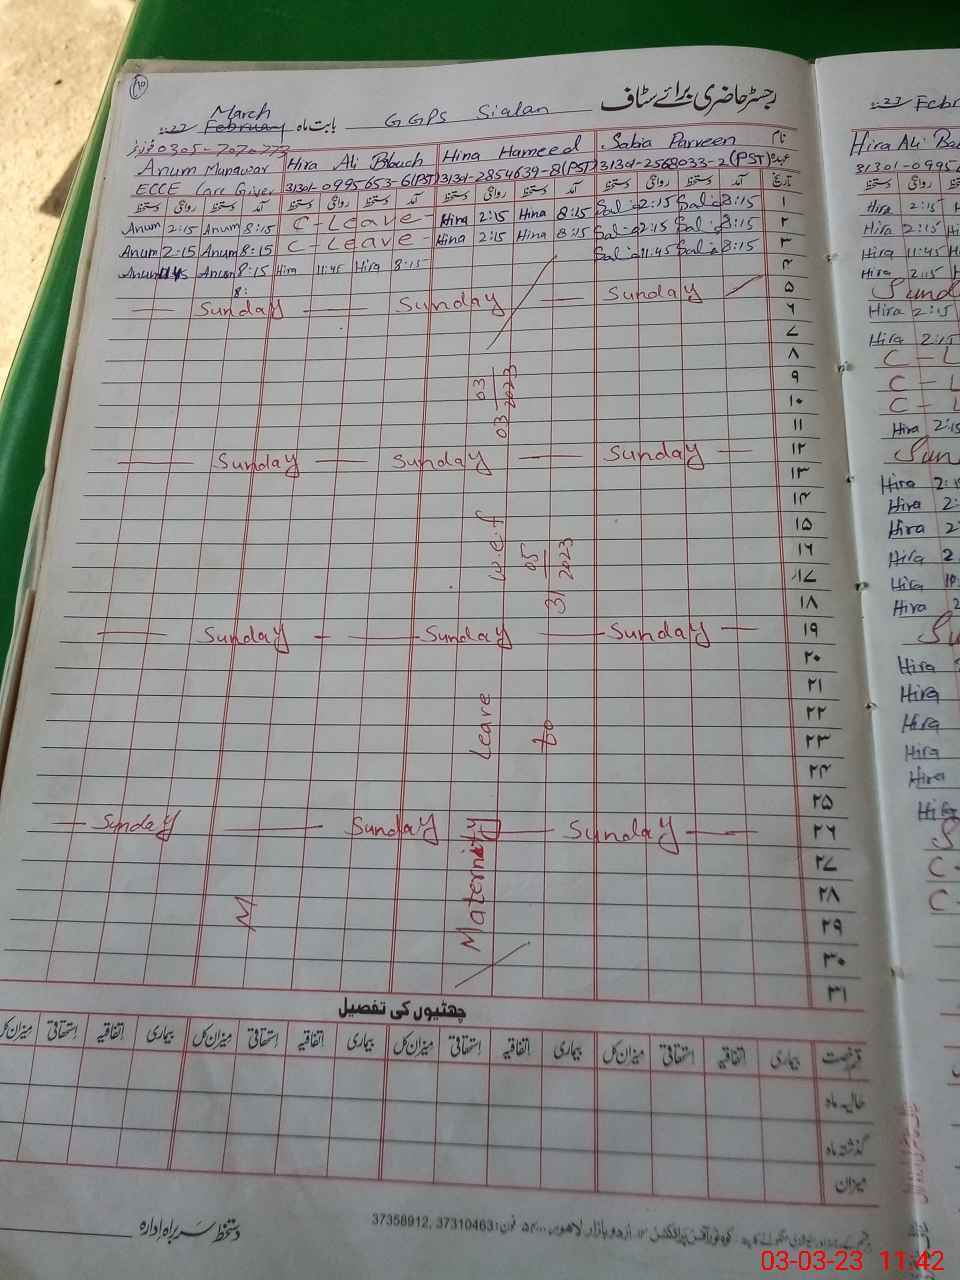 رجسٹر حاضری برائے سٹاف
March
February بابت ماہ GGPS Sialan
0305-7070773
نام Sabia Parveen Hina Hameed Hira Ali Blouch Anum Munawar
عہدہ 31301-2568033-2(PST) 31301-2854639-8(PST) 31301-0995653-6(PST) ECCE Care Giver
تاریخ آمد دستخط روانگی دستخط آمد دستخط روانگی دستخط آمد دستخط روانگی دستخط آمد دستخط روانگی دستخط
۱ 8:15 2:15 8:15 Hina 2:15 Hina C-Leave 8:15 Anum 2:15 Anum
۲ 8:15 2:15 8:15 Hina 2:15 Hina C-Leave 8:15 Anum 2:15 Anum
۳ 8:15 11:45 8:15 Hira 11:45 Hira 8:15 Anum Anum
۴ 8:
۵ Sunday Sunday Sunday
۶
۷
۸
۹
۱۰
۱۱
۱۲ Sunday Sunday Sunday
۱۳
۱۴
۱۵
۱۶
۱۷
۱۸
۱۹ Sunday Sunday Sunday
۲۰
۲۱
۲۲
۲۳
۲۴
۲۵
۲۶ Sunday Sunday Sunday
۲۷
۲۸
۲۹
۳۰
۳۱
Maternity Leave w.e.f 03 03 2023
to 31 05 2023
M
چھٹیوں کی تفصیل
قسم رخصت بیماری اتفاقیہ استحقاقی میزان کل بیماری اتفاقیہ استحقاقی میزان کل بیماری اتفاقیہ استحقاقی میزان کل بیماری اتفاقیہ استحقاقی میزان کل
حالیہ ماہ
گذشتہ ماہ
میزان
دستخط سربراہ ادارہ
اردو بازار لاہور فون: 37310463, 37358912
Hira Ali
31301-0995
Hira 2:15
Hira 2:15
Hira 11:45
Hira 2:15
Hira 2:15
Hira 2:15
C - L
C - L
C - L
Hira 2:15
Hira
Hira
Hira
Hira
Hira
Hira
Hira
Hira
Hira
Hira
Hira
03-03-23 11:42